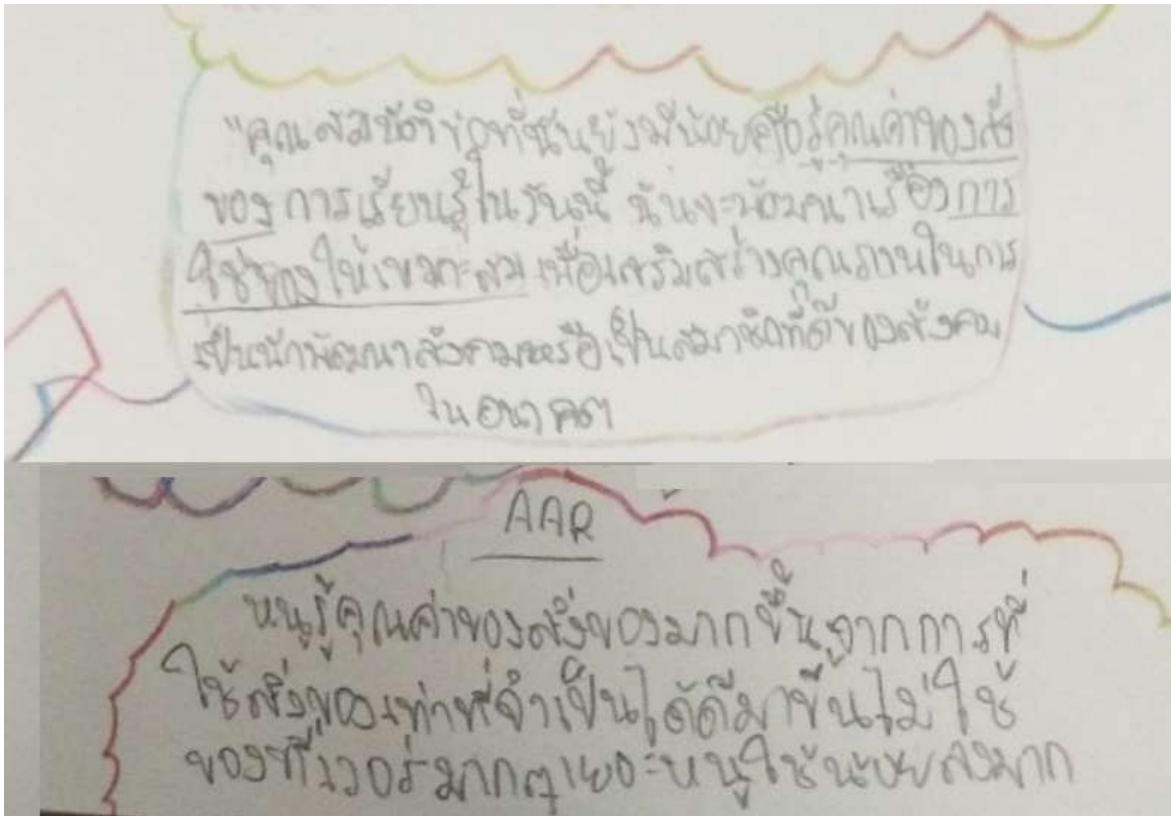 "คุณสมบัติข้อที่ฉันยังมีน้อยคือรู้คุณค่าของสิ่ง
ของ การเรียนรู้ในวันนี้ ฉันจะน้อมนำเรื่องการ
ใช้ของให้เหมาะสม เพื่อเสริมสร้างคุณภาพในการ
เป็นนักพัฒนาสังคมหรือเป็นสมาชิกที่ดีของสังคม
ในอนาคต
AAR
หนูรู้คุณค่าของสิ่งของมากขึ้นจากการที่
ใช้สิ่งของเท่าที่จำเป็นได้ดีมาขึ้นไม่ใช้
ของที่เวอร์มากๆเยอะหนูใช้น้อยลงมาก